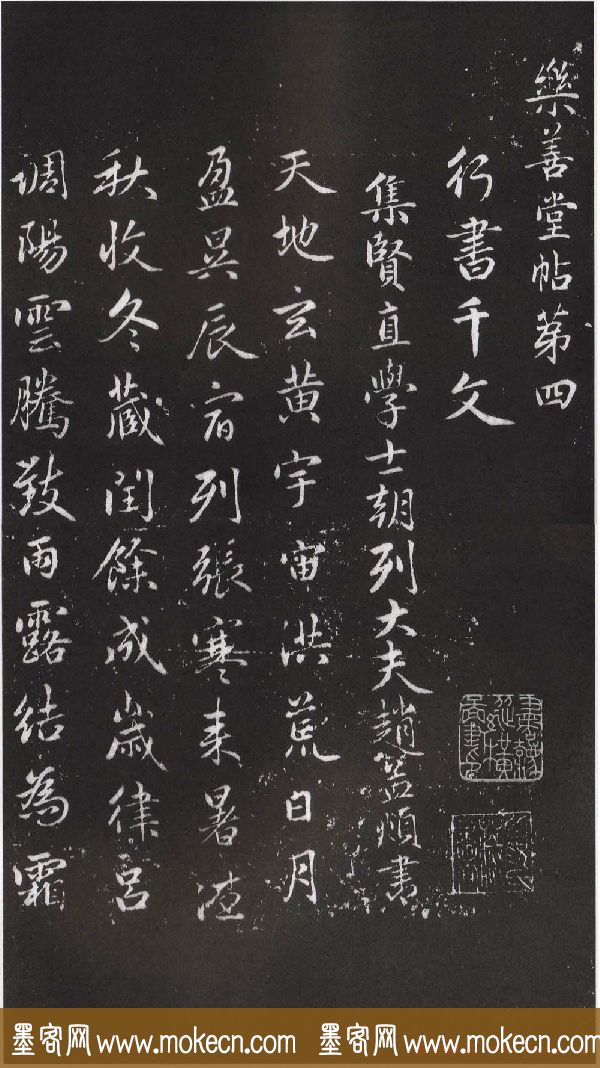 樂善堂帖第四
行書千文
集賢直學士朝列大夫趙孟頫書
天地玄黃宇宙洪荒日月
盈昃辰宿列張寒来暑往
秋收冬藏閏餘成歲律呂
調陽雲騰致雨露結為霜
墨客网 www.mokecn.com 墨客网 www.mokecn.com